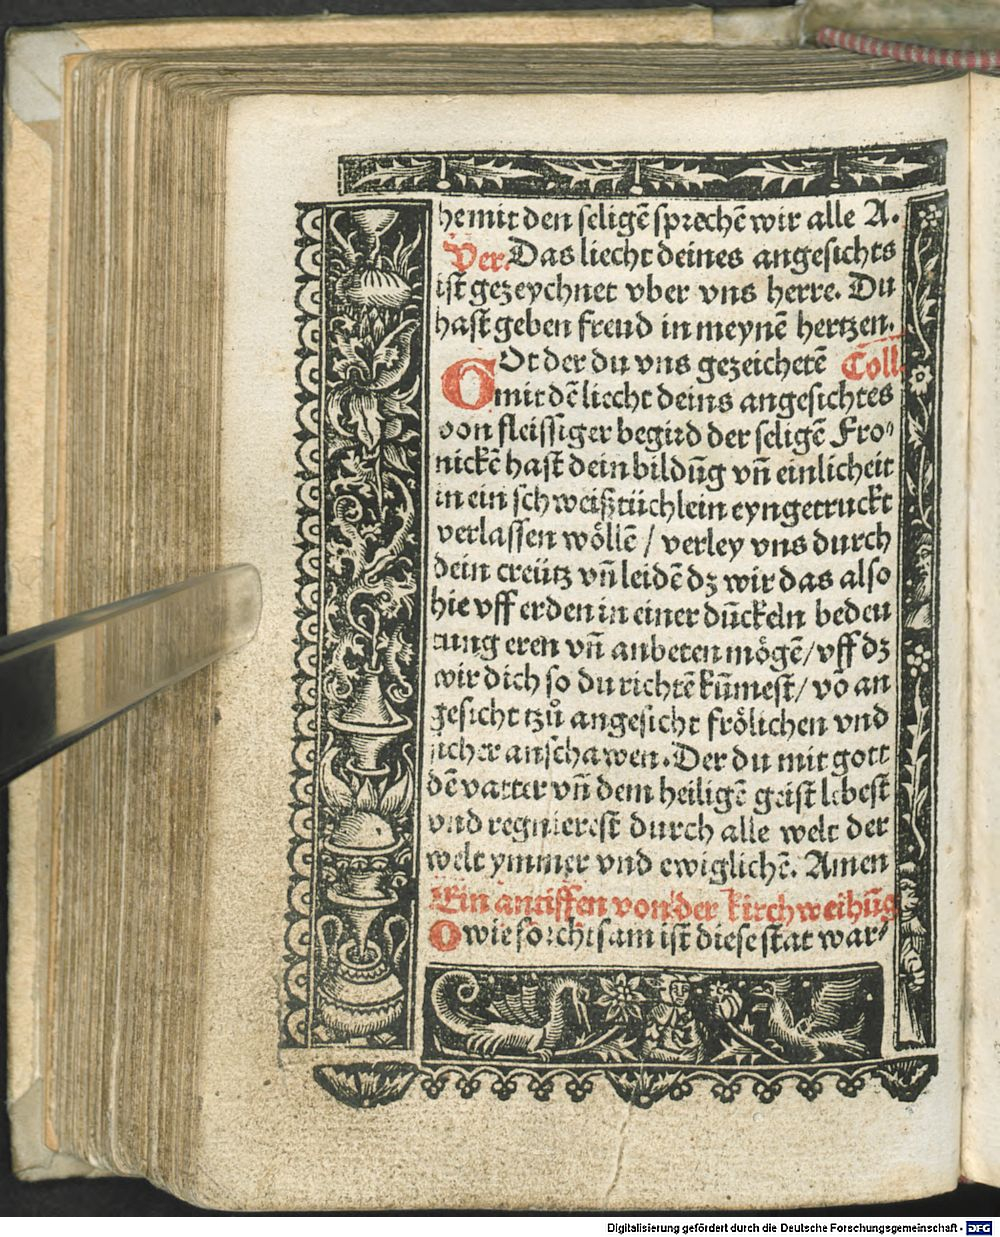 he mit den seligē sprechē wir alle A.
Ver. Das liecht deines angesichts
ist gezeychnet vber vns herre. Du
hast geben freud in meynē hertzen.
GOt der du vns gezeichetē Coll.
mit dē liecht deins angesichtes
von fleissiger begird der seligē Fro⸗
nickē hast dein bildūg vn̄ einlicheit
in ein schweißtüchlein eyngetruckt
verlassen wöllē / verley vns durch
dein creütz vn̄ leidē dz wir das also
hie vff erden in einer dūckeln bedeu
tung eren vn̄ anbeten mögē / vff dz
wir dich so du richtē kūmest / vō an
gesicht tzů angesicht frölichen vnd
sicher anschawen. Der du mit gott
dē vatter vn̄ dem heiligē geist lebest
vnd regnierest durch alle welt der
welt ymmer vnd ewiglichē. Amen
Ein antiffen von der kirchweihūg
O wie forchtsam ist diese stat war⸗
Digitalisierung gefördert durch die Deutsche Forschungsgemeinschaft - DFG